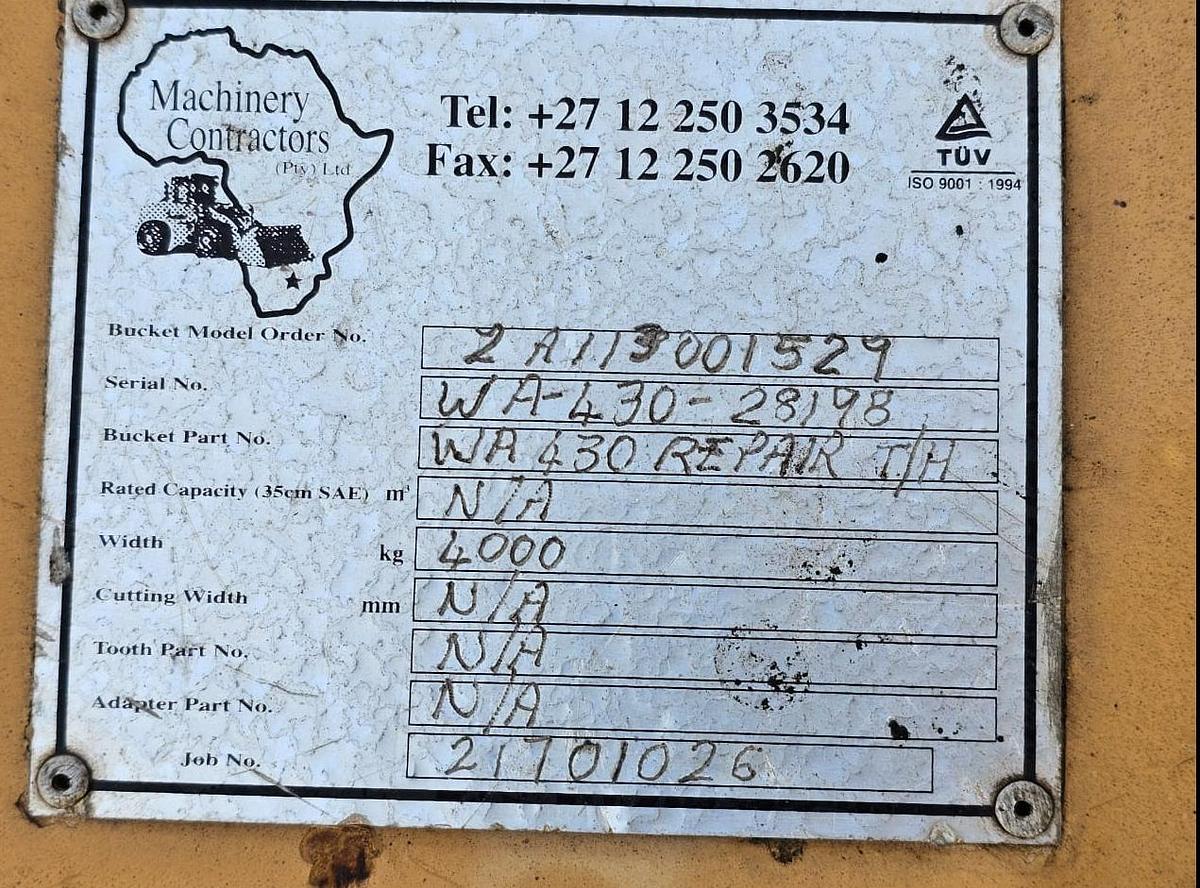 Machinery
Contractors
(Pty) Ltd
Tel: +27 12 250 3534
Fax: +27 12 250 2620
TÜV
ISO 9001 : 1994
Bucket Model Order No. ZA113001529
Serial No. WA-430-28198
Bucket Part No. WA 430 REPAIR T/H
Rated Capacity (35cm SAE) m³ N/A
Width kg 4000
Cutting Width mm N/A
Tooth Part No. N/A
Adapter Part No. N/A
Job No. 21701026